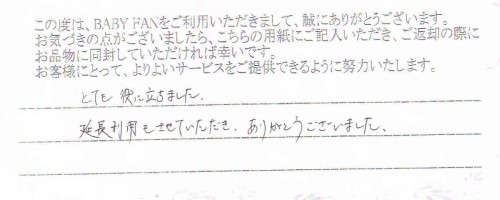 この度は、BABY FANをご利用いただきまして、誠にありがとうございます。
お気づきの点がございましたら、こちらの用紙にご記入いただき、ご返却の際に
お品物に同封していただければ幸いです。
お客様にとって、よりよいサービスをご提供できるように努力いたします。
とても役に立ちました。
延長利用もさせていただき、ありがとうございました。